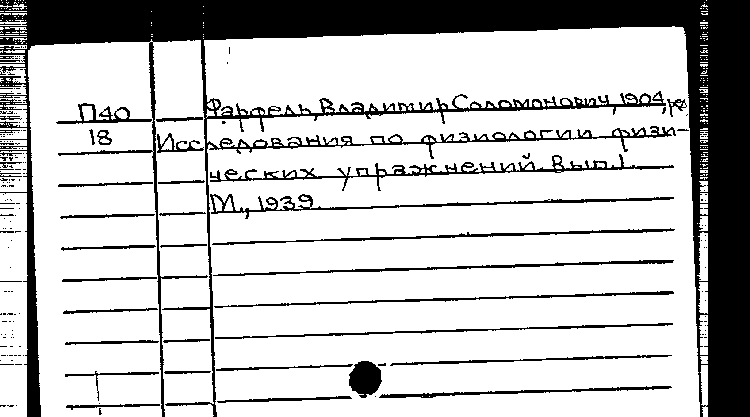 П40 Фарфель, Владимир Соломонович, 1904, ред.
18 Исследования по физиологии физи-
ческих упражнений. Вып. 1.
М., 1939.